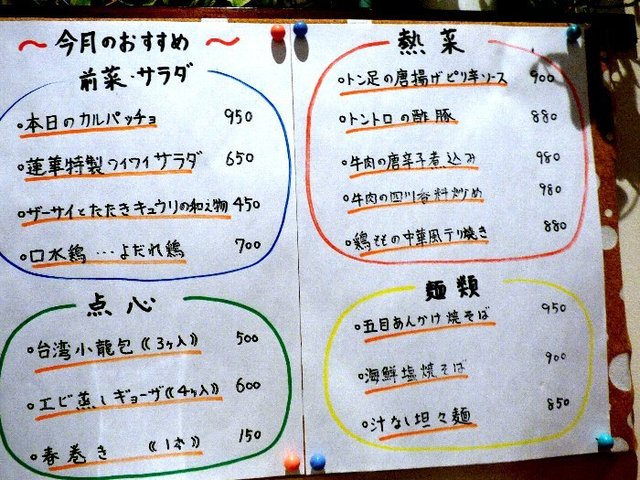 ～今月のおすすめ～
前菜・サラダ
・本日のカルパッチョ 950
・蓮華特製ワイワイサラダ 650
・ザーサイとたたきキュウリの和え物 450
・口水鶏…よだれ鶏 700
点心
・台湾小龍包《3ヶ入》 500
・エビ蒸しギョーザ《4ヶ入》 600
・春巻き 《1本》 150
熱菜
・トン足の唐揚げピリ辛ソース 900
・トントロの酢豚 880
・牛肉の唐辛子煮込み 980
・牛肉の四川香料炒め 980
・鶏ももの中華風テリ焼き 880
麺類
・五目あんかけ焼そば 950
・海鮮塩焼そば 900
・汁なし坦々麺 850